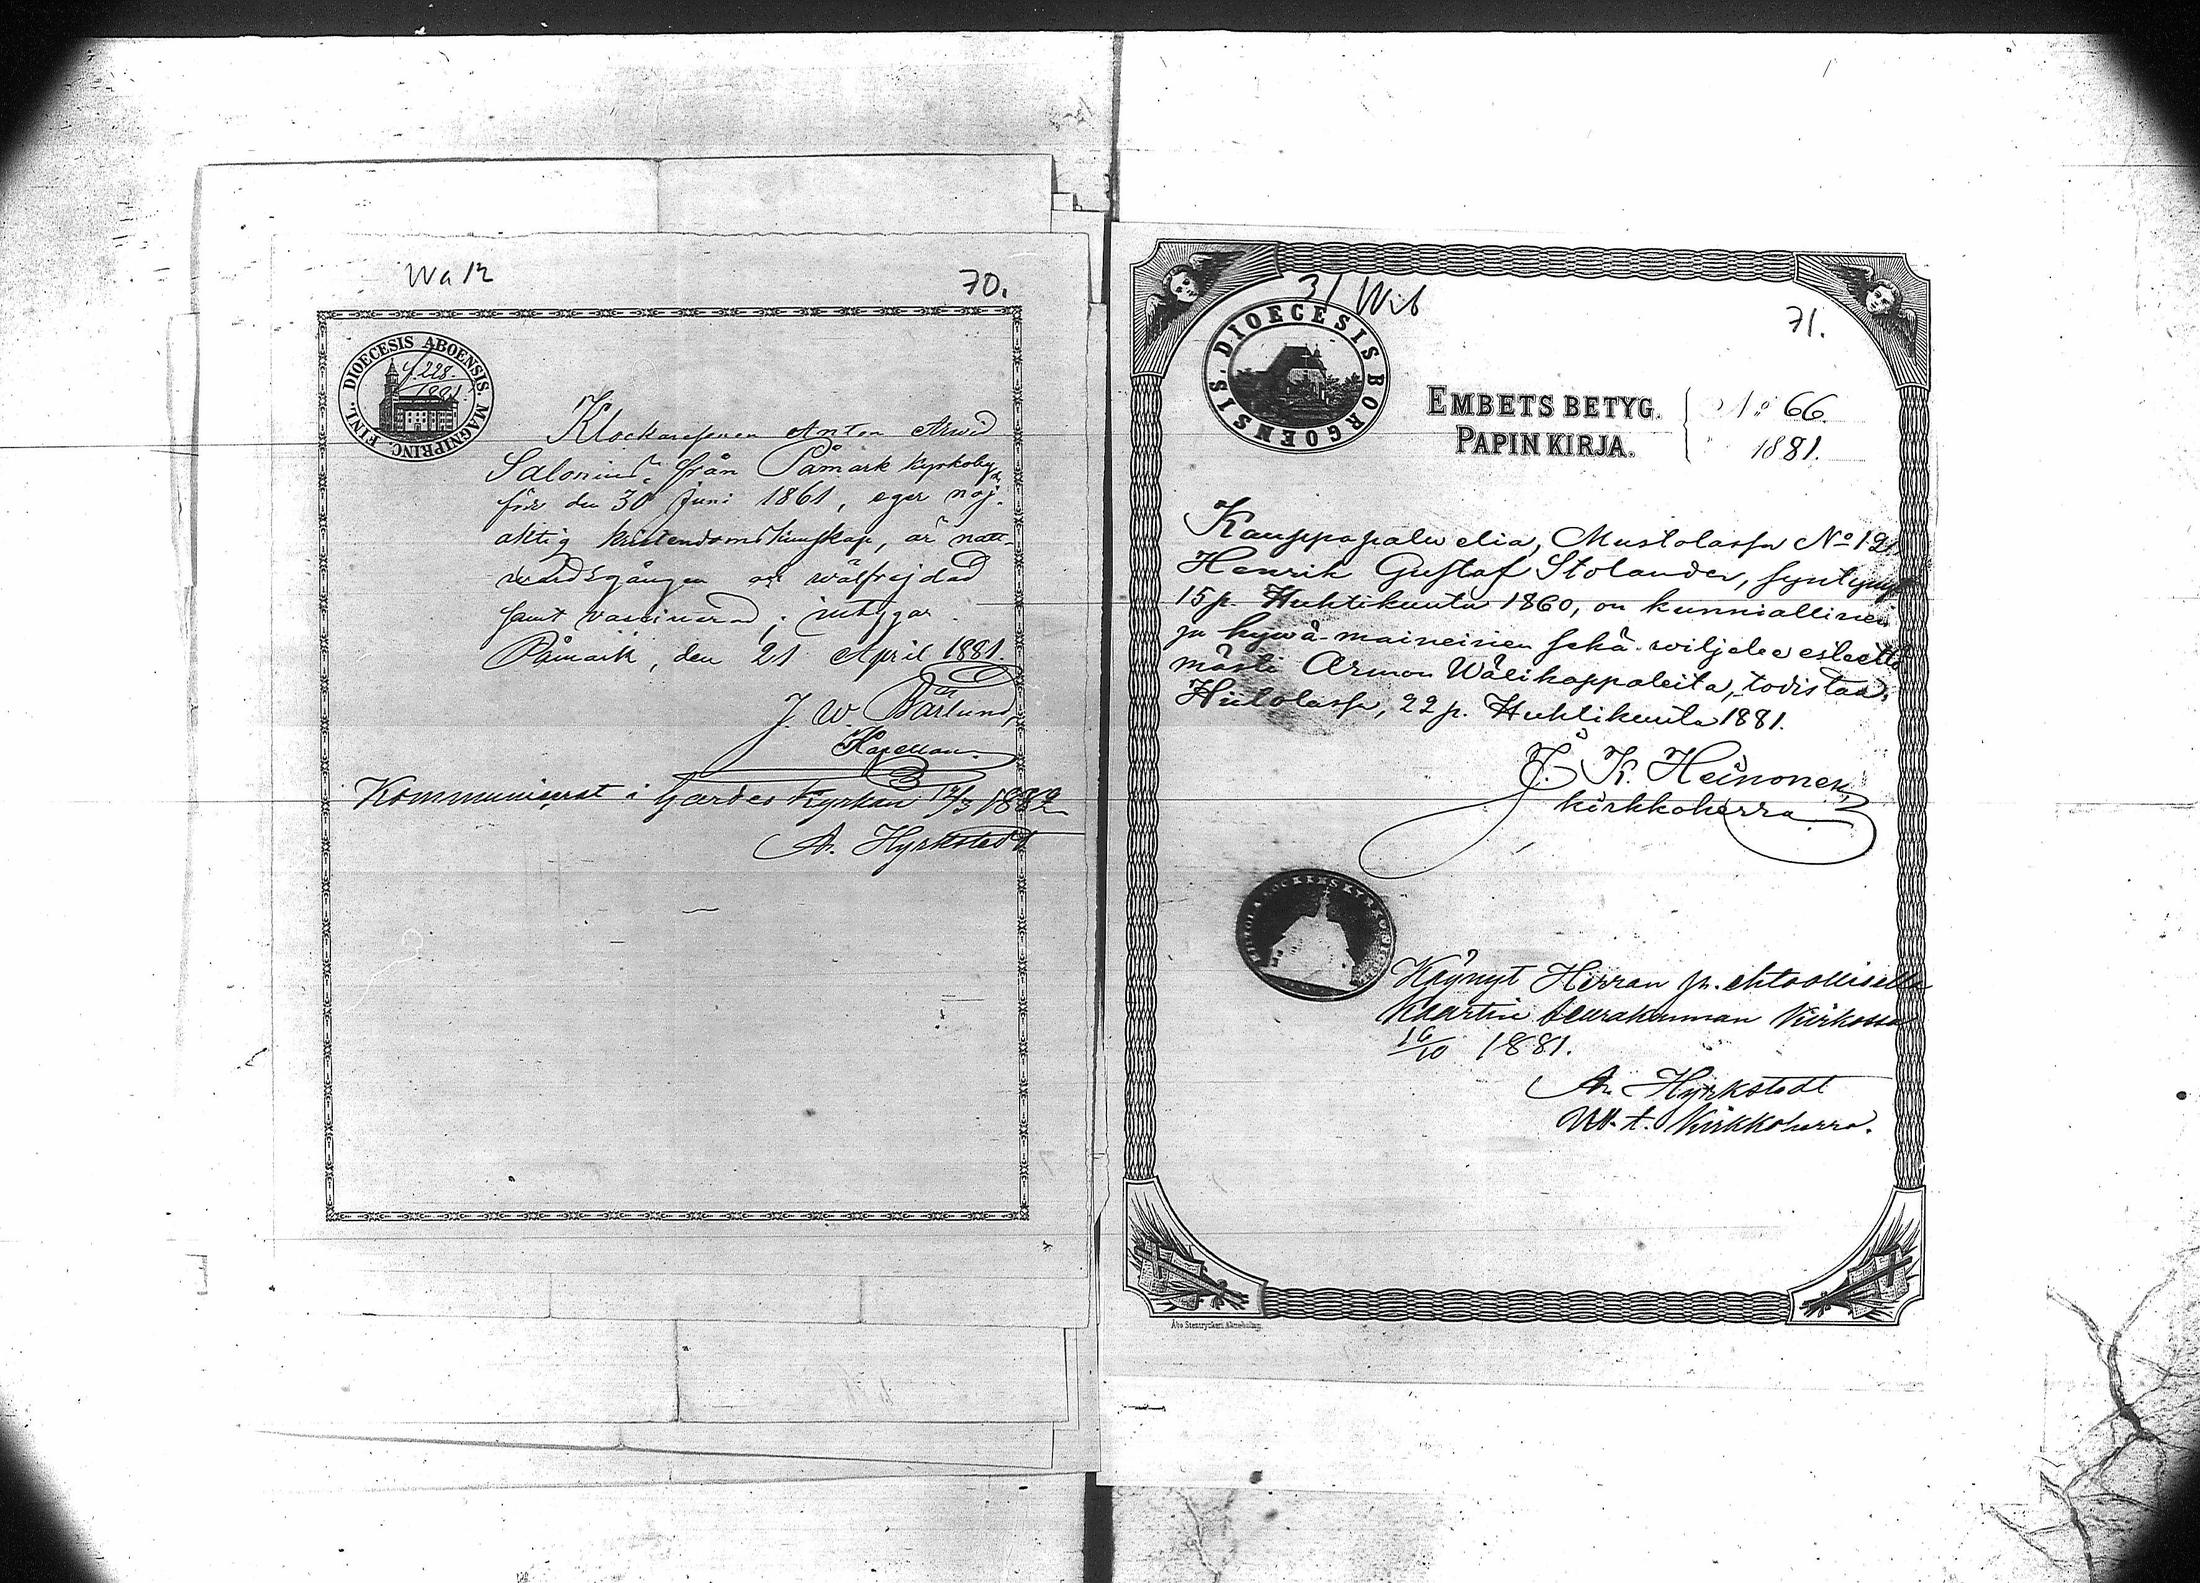 Wa 12
70.
DIOECESIS ABOENSIS. MAGNI PRINC. FINL.
228.
1881.
Klockaresonen Anton Arvid
Salonius, från Påmark kyrkoby,
för den 30 Juni 1861, eger nöj-
aktig kristendomskunskap, är natt-
wardsgången och wälfrejdad
samt vaccinerad; intygar.
Påmark, den 21 April 1881.
J. W. Bärlund,
Kapellan.
Kommunicerat i Gardes Kyrkan 12/3 1882
An. Hyrkstedt
31 Wib
71.
DIOECESIS BORGOENSIS.
EMBETS BETYG. No 66.
PAPINKIRJA. 1881.
Kauppapalwelia, Mustolassa No 12,
Henrik Gustaf Stolander, syntynyt
15 p. Huhtikuuta 1860, on kunniallinen
ja hywä-maineinen sekä wiljelee esteettö
mästi Armon Wälikappaleita, todistaa,
Hiitolassa, 22 p. Huhtikuuta 1881.
J. K. Heinonen,
kirkkoherra.
Käynyt Herran p. ehtoollisella
Kaartin seurakunnan Kirkossa
16/10 1881.
An. Hyrkstedt
W. t. Kirkkoherra.
Åbo Stentryckeri Aktiebolag.